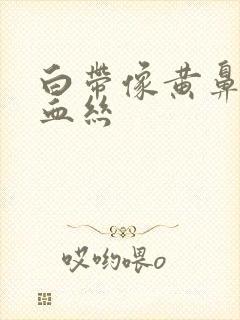 白帶像黃鼻
血絲
哎喲喂o